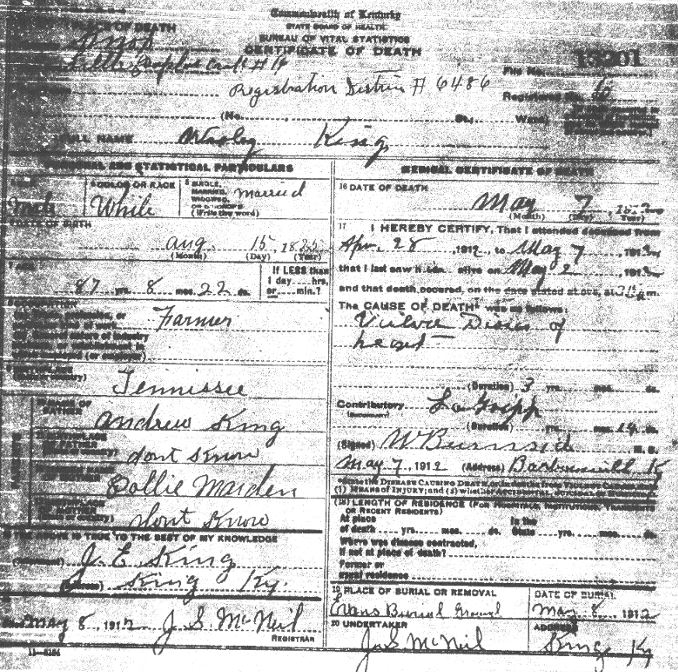 Commonwealth of Kentucky
STATE BOARD OF HEALTH
BUREAU OF VITAL STATISTICS
CERTIFICATE OF DEATH
OF DEATH
Knox
File No. 13201
Registration District # 6486
Registered No.
(No. St., Ward)
FULL NAME Wesley King
PERSONAL AND STATISTICAL PARTICULARS
COLOR OR RACE
White
SINGLE, MARRIED, WIDOWED, OR DIVORCED (Write the word)
Married
DATE OF BIRTH
Aug. 15, 1825
(Month) (Day) (Year)
AGE
87 yrs. 8 mos. 22 ds.
If LESS than 1 day.....hrs, or.....min.?
OCCUPATION
Farmer
BIRTHPLACE
Tennissee
NAME OF FATHER
Andrew King
BIRTHPLACE OF FATHER
dont Know
Dollie Maiden
dont Know
THE ABOVE IS TRUE TO THE BEST OF MY KNOWLEDGE
J. E. King
King Ky.
May 8, 1912 J. S. McNeil
REGISTRAR
MEDICAL CERTIFICATE OF DEATH
16 DATE OF DEATH
May 7, 1912
(Month) (Day) (Year)
17 I HEREBY CERTIFY, That I attended deceased from
Apr. 28 1912, to May 7, 1912,
that I last saw h alive on May 2, 1912,
and that death occured, on the date stated above, at m.
The CAUSE OF DEATH was as follows:
Disies of
heart
(Duration) 3 yrs. mos. ds.
Contributory La Gripp
(Duration) yrs. mos. 14 ds.
(Signed) W Burnsid M. D.
May 7, 1912 (Address) Barbourvill Ky
State the DISEASE CAUSING DEATH, or, in deaths from VIOLENT CAUSES, state
(1) MEANS OF INJURY; and (2) whether ACCIDENTAL, SUICIDAL or HOMICIDAL
LENGTH OF RESIDENCE (FOR HOSPITALS, INSTITUTIONS, TRANSIENTS OR RECENT RESIDENTS)
At place of death yrs. mos. ds. In the State yrs. mos. ds.
Where was disease contracted,
if not at place of death?
Former or
usual residence
19 PLACE OF BURIAL OR REMOVAL
Evans Burial Ground
DATE OF BURIAL
May 8, 1912
20 UNDERTAKER
J S McNeil
ADDRESS
King, Ky